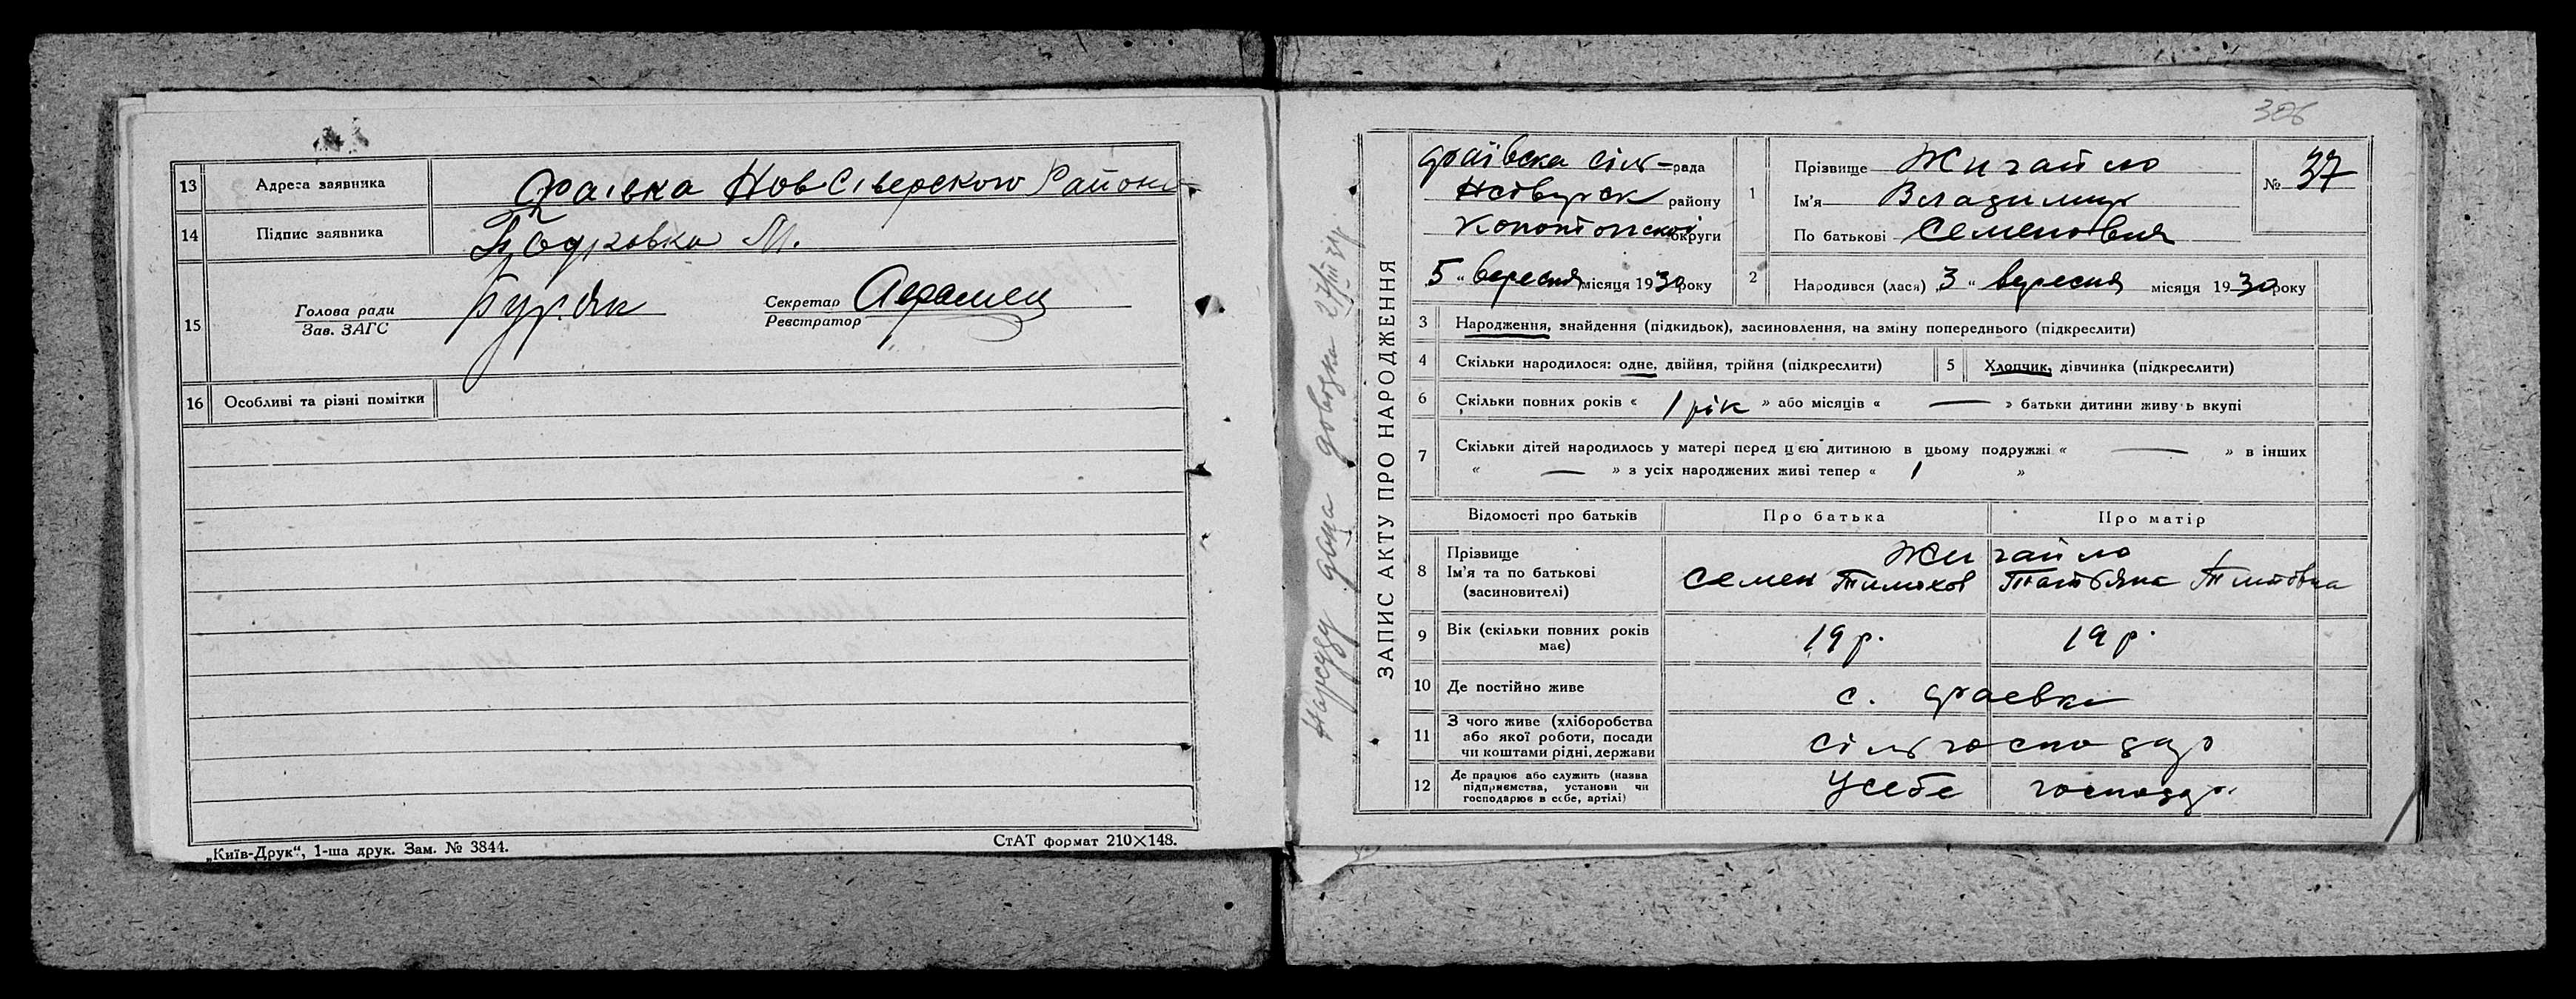 13 Адреса заявника Фаївка Нов Сіверского Району
14 Підпис заявника М.
15 Голова ради Буряк Секретар
Зав. ЗАГС Реєстратор
16 Особливі та різні помітки
„Київ-Друк“, 1-ша друк. Зам. № 3844.
СтАТ формат 210×148.
326
ЗАПИС АКТУ ПРО НАРОДЖЕННЯ
Фаївска сіль-рада
району
Конотопскої округи
5 „ вересня місяця 1930 року
1 Прізвище Жигайло
Ім'я Владимир
По батькові Семенович
№ 37
2 Народився (лася) 3 „ вересня місяця 1930 року
3 Народження, знайдення (підкидьок), засиновлення, на зміну попереднього (підкреслити)
4 Скільки народилося: одне, двійня, трійня (підкреслити)
5 Хлопчик, дівчинка (підкреслити)
6 Скільки повних років « 1 рік » або місяців « — » батьки дитини живуть вкупі
7 Скільки дітей народилось у матері перед цією дитиною в цьому подружжі « — » в інших
« — » з усіх народжених живі тепер « 1 »
Відомості про батьків Про батька Про матір
8 Прізвище Жигайло
Ім'я та по батькові Семен Тимохов Татьяна Титовна
(засиновителі)
9 Вік (скільки повних років має) 19 р. 19 р.
10 Де постійно живе с. Фаевка
11 З чого живе (хліборобства
або якої роботи, посади
чи коштами рідні, держави сільгосподар
12 Де працює або служить (назва
підприємства, установи чи
господарює в себе, артілі) Усебе господар.